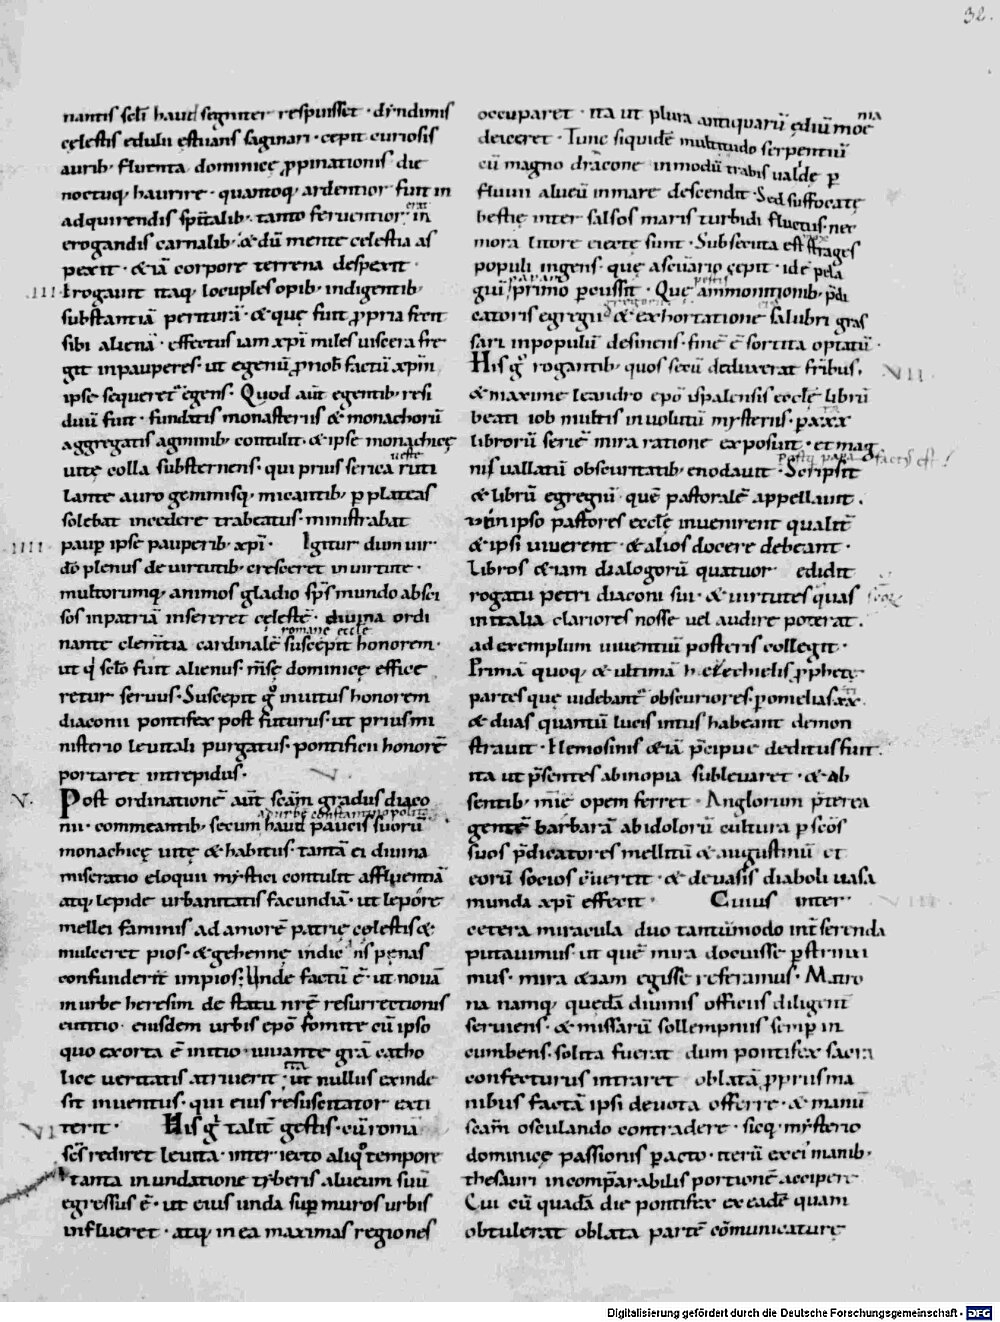 32.
nantis seli haud segniter respuisset · dyndimis
celestis edulii estuans saginari · cepit curiosis
aurib; fluenta dominicę ppinationis die
noctuq; haurire · quantoq; ardentior fuit in
adquirendis spitalib; tanto ferventior erat in
erogandis carnalib; & dū mente celestia as
pexit · & iā corpore terrena despexit ·
.III. Erogavit itaq; locuples opib; indigentib;
substantiā periturā · & que sunt ppria fecit
sibi alienā · effectus iam xpi miles viscera fre
git in pauperes · ut egenū p nob factū xpm
ipse sequeret egens · Quod aut egentib; resi
duū fuit · fundatis monasteriis & monachorū
aggregatis agminib; contulit · & ipse monachicę
vitę colla substernens · qui prius serica veste ruti
lante auro gemmisq; micantib; p plateas
solebat incedere trabeatus · ministrabat
IIII. paup ipse pauperib; xpi · Igitur dum vir
dī plenus de virtutib; cresceret in virtute ·
multorumq; animos gladio sps mundo absci
sos in patriā insereret celestē · divina ordi
nante clemtia cardinalē romane eccle suscepit honorem ·
ut q sclo fuit alienus · mse dominicę effice
retur servus · Suscepit g invitus honorem
diaconii pontifex post futurus · ut prius mi
nisterio levitali purgatus · pontificii honorē
portaret intrepidus ·
V. Post ordinationē aut scam gradus diaco
nii · commeantib; a purbe constantinopolitū secum haud paucis suorū
monachicę vitę & habitus · tantā ei divina
miseratio eloquii mystici contulit affluentiā
atq; lepide urbanitatis facundiā · ut lepore
mellei faminis ad amorē patrię celestis &
mulceret pios · & gehennę indic ns penas
confunderet impios · Unde factū ē · ut novā
in urbe heresim de statu nrę resurrectionis
eutitio · eiusdem urbis epo fomite cū ipso
quo exorta ē initio · iuvante gra catho
licę veritatis attriverit · ita ut nullus exinde
sit inventus · qui eius resuscitator exti
VI terit · His g talit gestis · cū romā
scs rediret levita · interiecto aliq tempore
tanta inundatione tyberis alveum suū
egressus ē · ut eius unda sup muros urbis
influeret · atq; in ea maximas regiones
occuparet · ita ut plura antiquarū ediū moenia
deiceret · Tunc siquidē multitudo serpentiū
cū magno dracone in modū trabis valde p
fluvii alveū in mare descendit · Sed suffocate
bestię inter salsos maris turbidi fluctus · nec
mora litore eiecte sunt · Subsecuta est strages
populi ingens · quę a scuario cepit · idē pela
guī papam primo pcussit · Que ammonitionib; pdi
catoris egregii gregorii & exhortatione salubri gras
sari in populū desinens · finē ē sortita optatū ·
His g rogantib; quos secū deduxerat fribus · VII.
& maxime leandro epo ispalensis ecclę librū
beati iob multis involutū mysteriis · p xxx
librorū seriē mira ratione exposuit · et mag
nis vallatū obscuritatib; enodavit · postq papa factus est Scripsit
& librū egregiū quē pastoralē appellavit ·
ut in ipso pastores ecclę invenirent qualit
& ipsi viverent · & alios docere debeant ·
Libros &iam dialogorū quatuor edidit
rogatu petri diaconi sui · & virtutes quas
in italia clariores nosse vel audire poterat ·
ad exemplum viventiū posteris collegit ·
Primā quoq; & ultimā hezechielis pphetę
partes que videbant obscuriores · p omelias xx
& duas quantū lucis intus habeant demon
stravit · Elemosinis &iā pcipue deditus fuit.
ita ut psentes ab inopia sublevaret · & ab
sentib; mie opem ferret · Anglorum pterea
gentē barbarā ab idolorū cultura p scos
suos pdicatores mellitū & augustinū et
eorū socios cvertit · & de vasis diaboli vasa
munda xpi effecit · Cuius inter VIII.
cetera miracula duo tantummodo int serenda
putavimus · ut quē mira docuisse pstrinxi
mus · mira &iam egisse referamus · Matro
na namq; quedā divinis officiis diligent
serviens · & missarū sollempniis semp in
cumbens · solita fuerat dum pontifex sacra
confecturus intraret oblatā ppriis ma
nibus factā ipsi devota offerre · & manū
scam osculando contradere · sicq; mysterio
dominicę passionis pacto · iterū ex ei manib;
thesauri incomparabilis portionē accipere
Cui cū quadā die pontifex ex eadē quam
obtulerat oblata partē comunicaturę
Digitalisierung gefördert durch die Deutsche Forschungsgemeinschaft - DFG